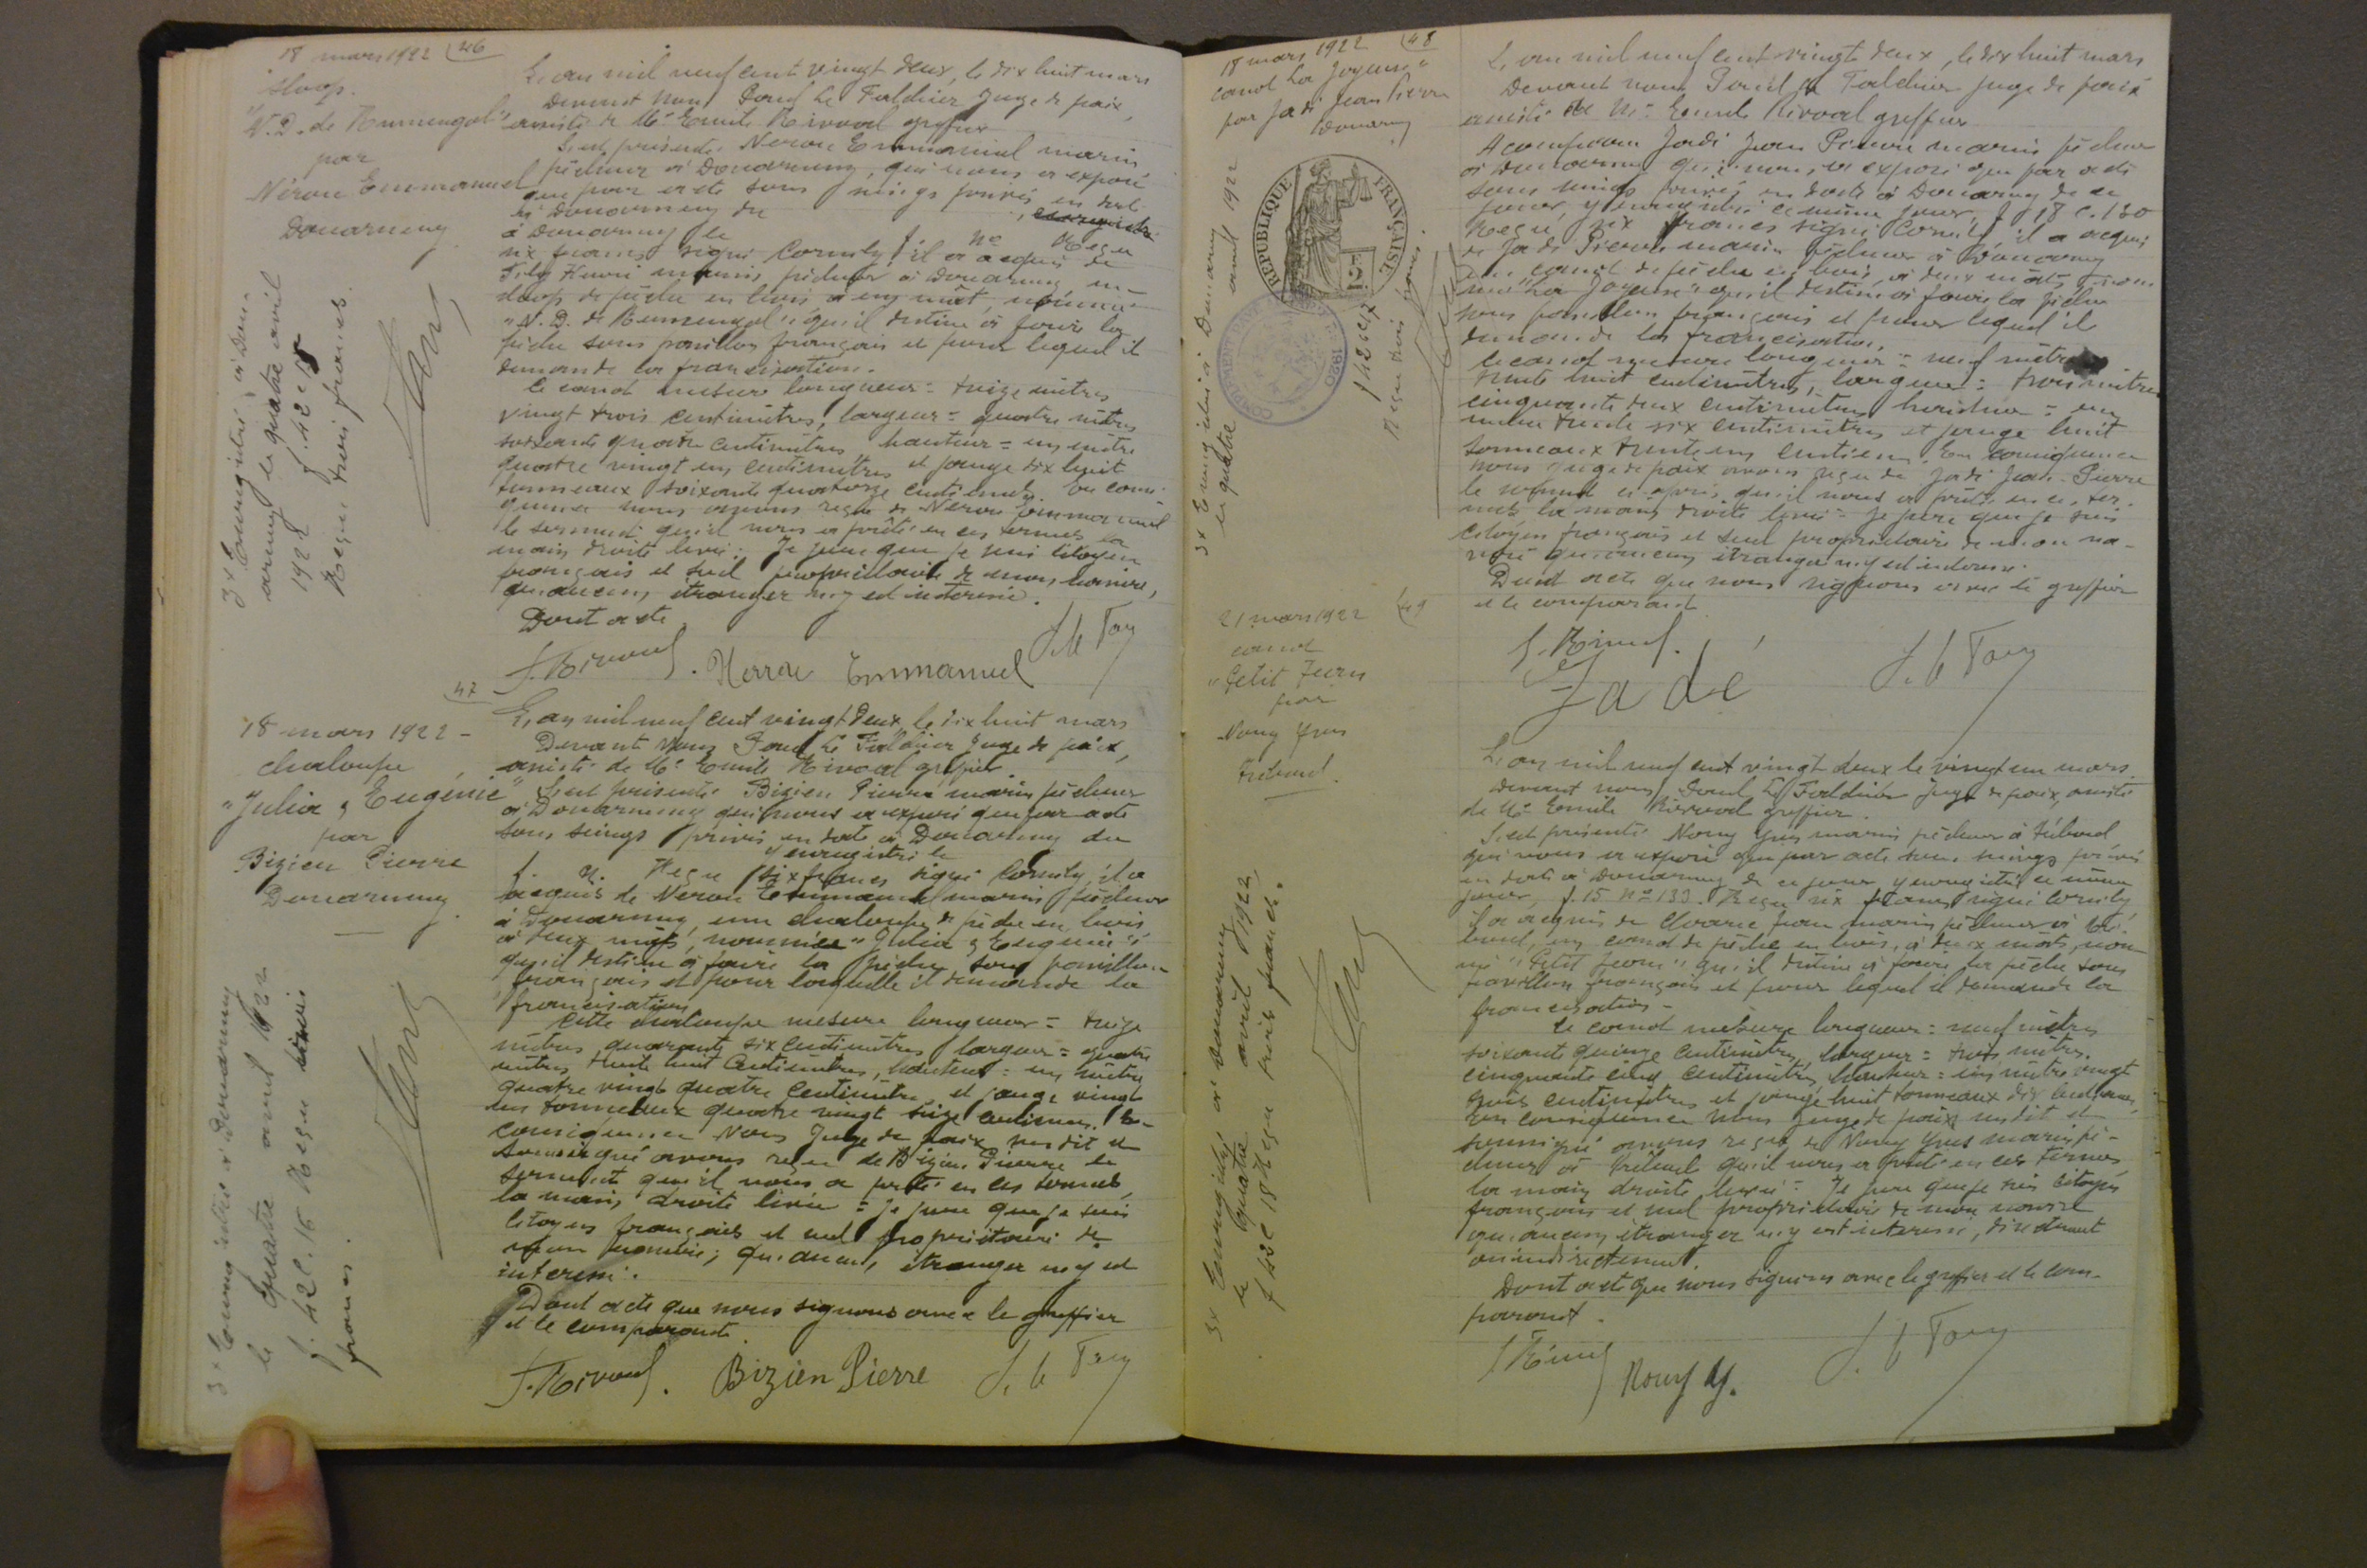 18 mars 1922 46
sloop.
"N. D. de Rumengol"
par
Nérou Emmanuel
Douarnenez
3 x Enregistré à Douarnenez le quatre avril
1922 f. 42 c 15
Reçu trois francs.
L'an mil neuf cent vingt deux, le dix huit mars
Devant nous Le Faldier Juge de paix,
assisté de Me Emile Rivoal greffier
S'est présenté Nerou Emmanuel marin
pêcheur à Douarnenez, qui nous a exposé
que par acte sous seings privés en date
à Douarnenez du , enregistré
à Douarnenez le f. No Reçu
six francs signé Cornily il a acquis de
Henri marin pêcheur à Douarnenez, un
sloop de pêche en bois à un mât, nommé
"N. D. de Rumengol" qu'il destine à faire la
pêche sous pavillon français et pour lequel il
demande la francisation.
Le canot mesure longueur = treize mètres
vingt trois centimètres, largeur = quatre mètres
soixante quatre centimètres hauteur = un mètre
quatre vingt un centimètres et jauge dix huit
tonneaux soixante quatorze centièmes. En consé-
quence nous avons reçu de Nérou Emmanuel
le serment qu'il nous a prêté en ces termes la
main droite levée : Je jure que je suis citoyen
français et seul propriétaire de mon navire,
qu'aucun étranger n'y est intéressé.
Dont acte
Rivoal. Nerrou Emmanuel
47
18 mars 1922 -
chaloupe
"Julia & Eugénie"
par
Bizien Pierre
Douarnenez
3 x Enregistré à Douarnenez
le quatre avril 1922
f. 42 c. 16 Reçu trois
francs.
L'an mil neuf cent vingt deux, le dix huit mars
Devant nous Le Faldier Juge de paix,
assisté de Me Emile Rivoal greffier.
S'est présenté Bizien Pierre marin pêcheur
à Douarnenez qui nous a exposé que par acte
sous seings privés en date à Douarnenez du
y enregistré le
f. n. Reçu six francs signé Cornily, il a
acquis de Nerou Emmanuel marin pêcheur
à Douarnenez, une chaloupe de pêche en bois
à deux mâts, nommée "Julia & Eugénie"
qu'il destine à faire la pêche sous pavillon
français et pour laquelle il demande la
francisation
Cette chaloupe mesure longueur = treize
mètres quarante six centimètres largeur = quatre
mètres trente huit centimètres, hauteur = un mètre
quatre vingt quatre centimètres et jauge vingt
un tonneaux quatre vingt seize centièmes. En
conséquence Nous Juge de paix susdit et
soussigné avons reçu de Bizien Pierre le
serment qu'il nous a prêté en ces termes,
la main droite levée = Je jure que je suis
citoyen français et seul propriétaire de
mon navire, qu'aucun étranger n'y est
intéressé.
Dont acte que nous signons avec le greffier
et le comparant.
Rivoal. Bizien Pierre
18 mars 1922 48
canot La Joyeuse
par Jadé Jean Pierre
Douarnenez
RÉPUBLIQUE FRANÇAISE
3 x Enregistré à Douarnenez
le quatre avril 1922
f 42 c 17
Reçu trois francs.
L'an mil neuf cent vingt deux, le dix huit mars
Devant nous Le Faldier Juge de paix
assisté de Me Emile Rivoal greffier
A comparu Jadé Jean Pierre marin pêcheur
à Douarnenez qui nous a exposé que par acte
sous seings privés en date à Douarnenez de ce
jour, y enregistré ce même jour, f 18 c. 130
Reçu six francs signé Cornily il a acquis
de Jadé Pierre marin pêcheur à Douarnenez
un canot de pêche en bois, à deux mâts nom-
mé "La Joyeuse" qu'il destine à faire la pêche
sous pavillon français et pour lequel il
demande la francisation.
Le canot mesure longueur = neuf mètres
trente huit centimètres, largeur = trois mètres
cinquante deux centimètres hauteur = un
mètre trente six centimètres et jauge huit
tonneaux trente un centièmes. En conséquence
nous Juge de paix avons reçu de Jadé Jean-Pierre
le serment ci-après qu'il nous a prêté en ces ter-
mes la main droite levée = Je jure que je suis
citoyen français et seul propriétaire de mon na-
vire qu'aucun étranger n'y est intéressé.
Dont acte que nous signons avec le greffier
et le comparant
Rivoal.
Jadé
21 mars 1922 49
canot
"Petit Jean
par
Nouy Yves
Tréboul.
3 x Enregistré à Douarnenez
le quatre avril 1922
f 42 c 18 Reçu trois francs.
L'an mil neuf cent vingt deux le vingt un mars
Devant nous Le Faldier Juge de paix, assisté
de Me Emile Rivoal greffier.
S'est présenté Nouy Yves marin pêcheur à Tréboul
qui nous a exposé que par acte sous seings privés
en date à Douarnenez de ce jour y enregistré ce même
jour, f. 15 No 133. Reçu six francs signé Cornily
il a acquis de Jean marin pêcheur à Tré-
boul, un canot de pêche en bois, à deux mâts, nom-
mé "Petit Jean" qu'il destine à faire la pêche sous
pavillon français et pour lequel il demande la
francisation -
Le canot mesure longueur = neuf mètres
soixante quinze centimètres, largeur = trois mètres
cinquante cinq centimètres, hauteur = un mètre vingt
trois centimètres et jauge huit tonneaux dix centièmes,
en conséquence nous Juge de paix susdit et
soussigné avons reçu de Nouy Yves marin pê-
cheur à Tréboul qu'il nous a prêté en ces termes
la main droite levée = Je jure que je suis citoyen
français et seul propriétaire de mon navire
qu'aucun étranger n'y est intéressé, directement
ou indirectement.
Dont acte que nous signons avec le greffier et le com-
parant.
Nouy Y.